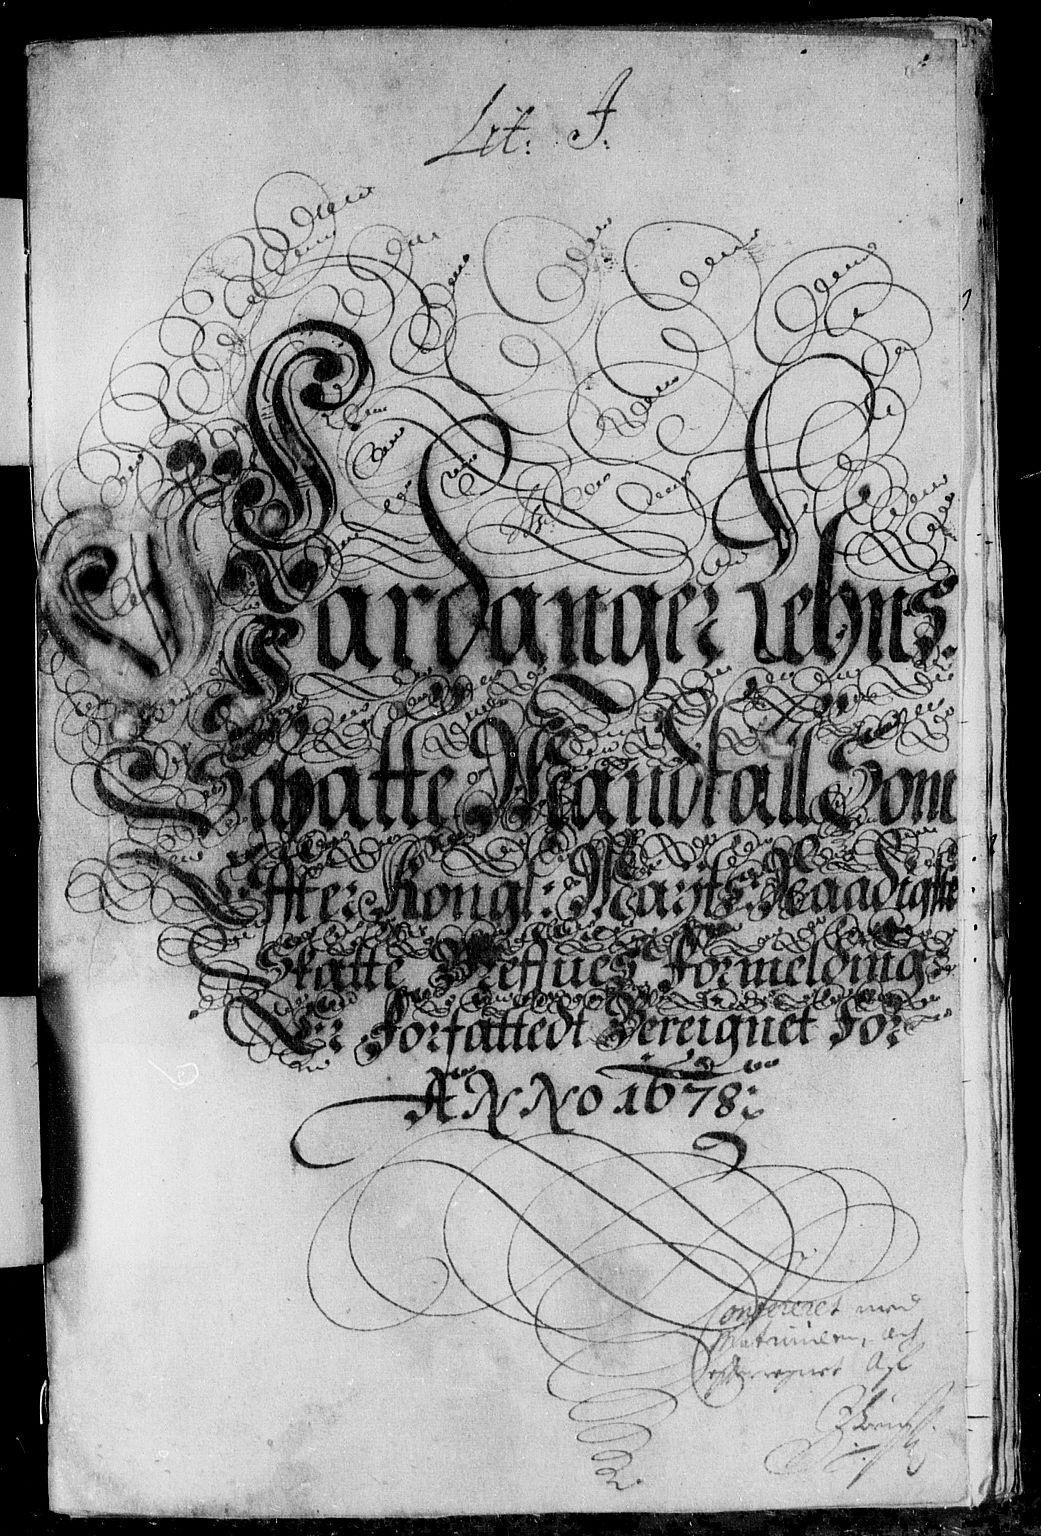 Lit: J:
Hardanger Lehns
Schatte Mandtall Som
Effter Kongl: Maÿts: Naadigste
Skatte Breffues Formelding
Er Forfattedt Bereignet For
ANNO 1678:
Confereret med
Matriculen, och
efterregnet Af